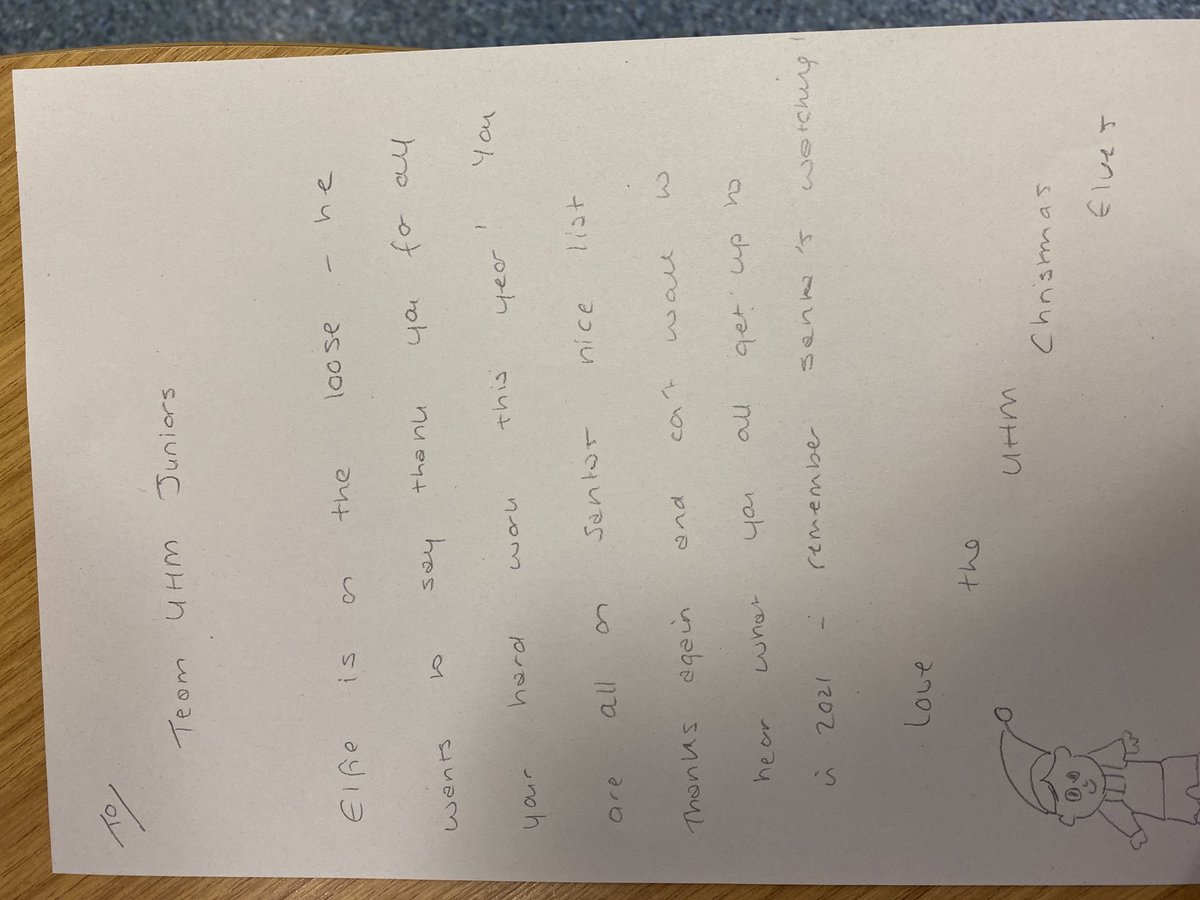 To/
Team UHM Juniors
Elfie is on the loose - he
wants to say thank you for all
your hard work this year! You
are all on Santas nice list
Thanks again and can't wait to
hear what you all get up to
in 2021 - remember santa's watching!
Love
the
UHM
Christmas
Elves